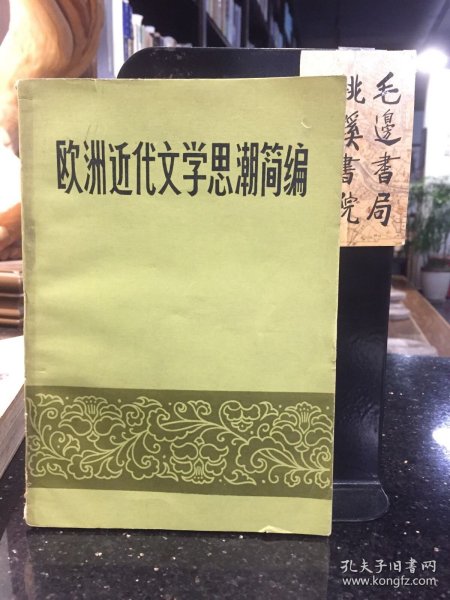 欧洲近代文学思潮简编
毛邊書局
桃溪書院
孔夫子旧书网
www.kongfz.com